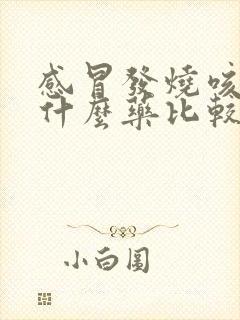 感冒發燒咳
什麼藥比較
小白圓